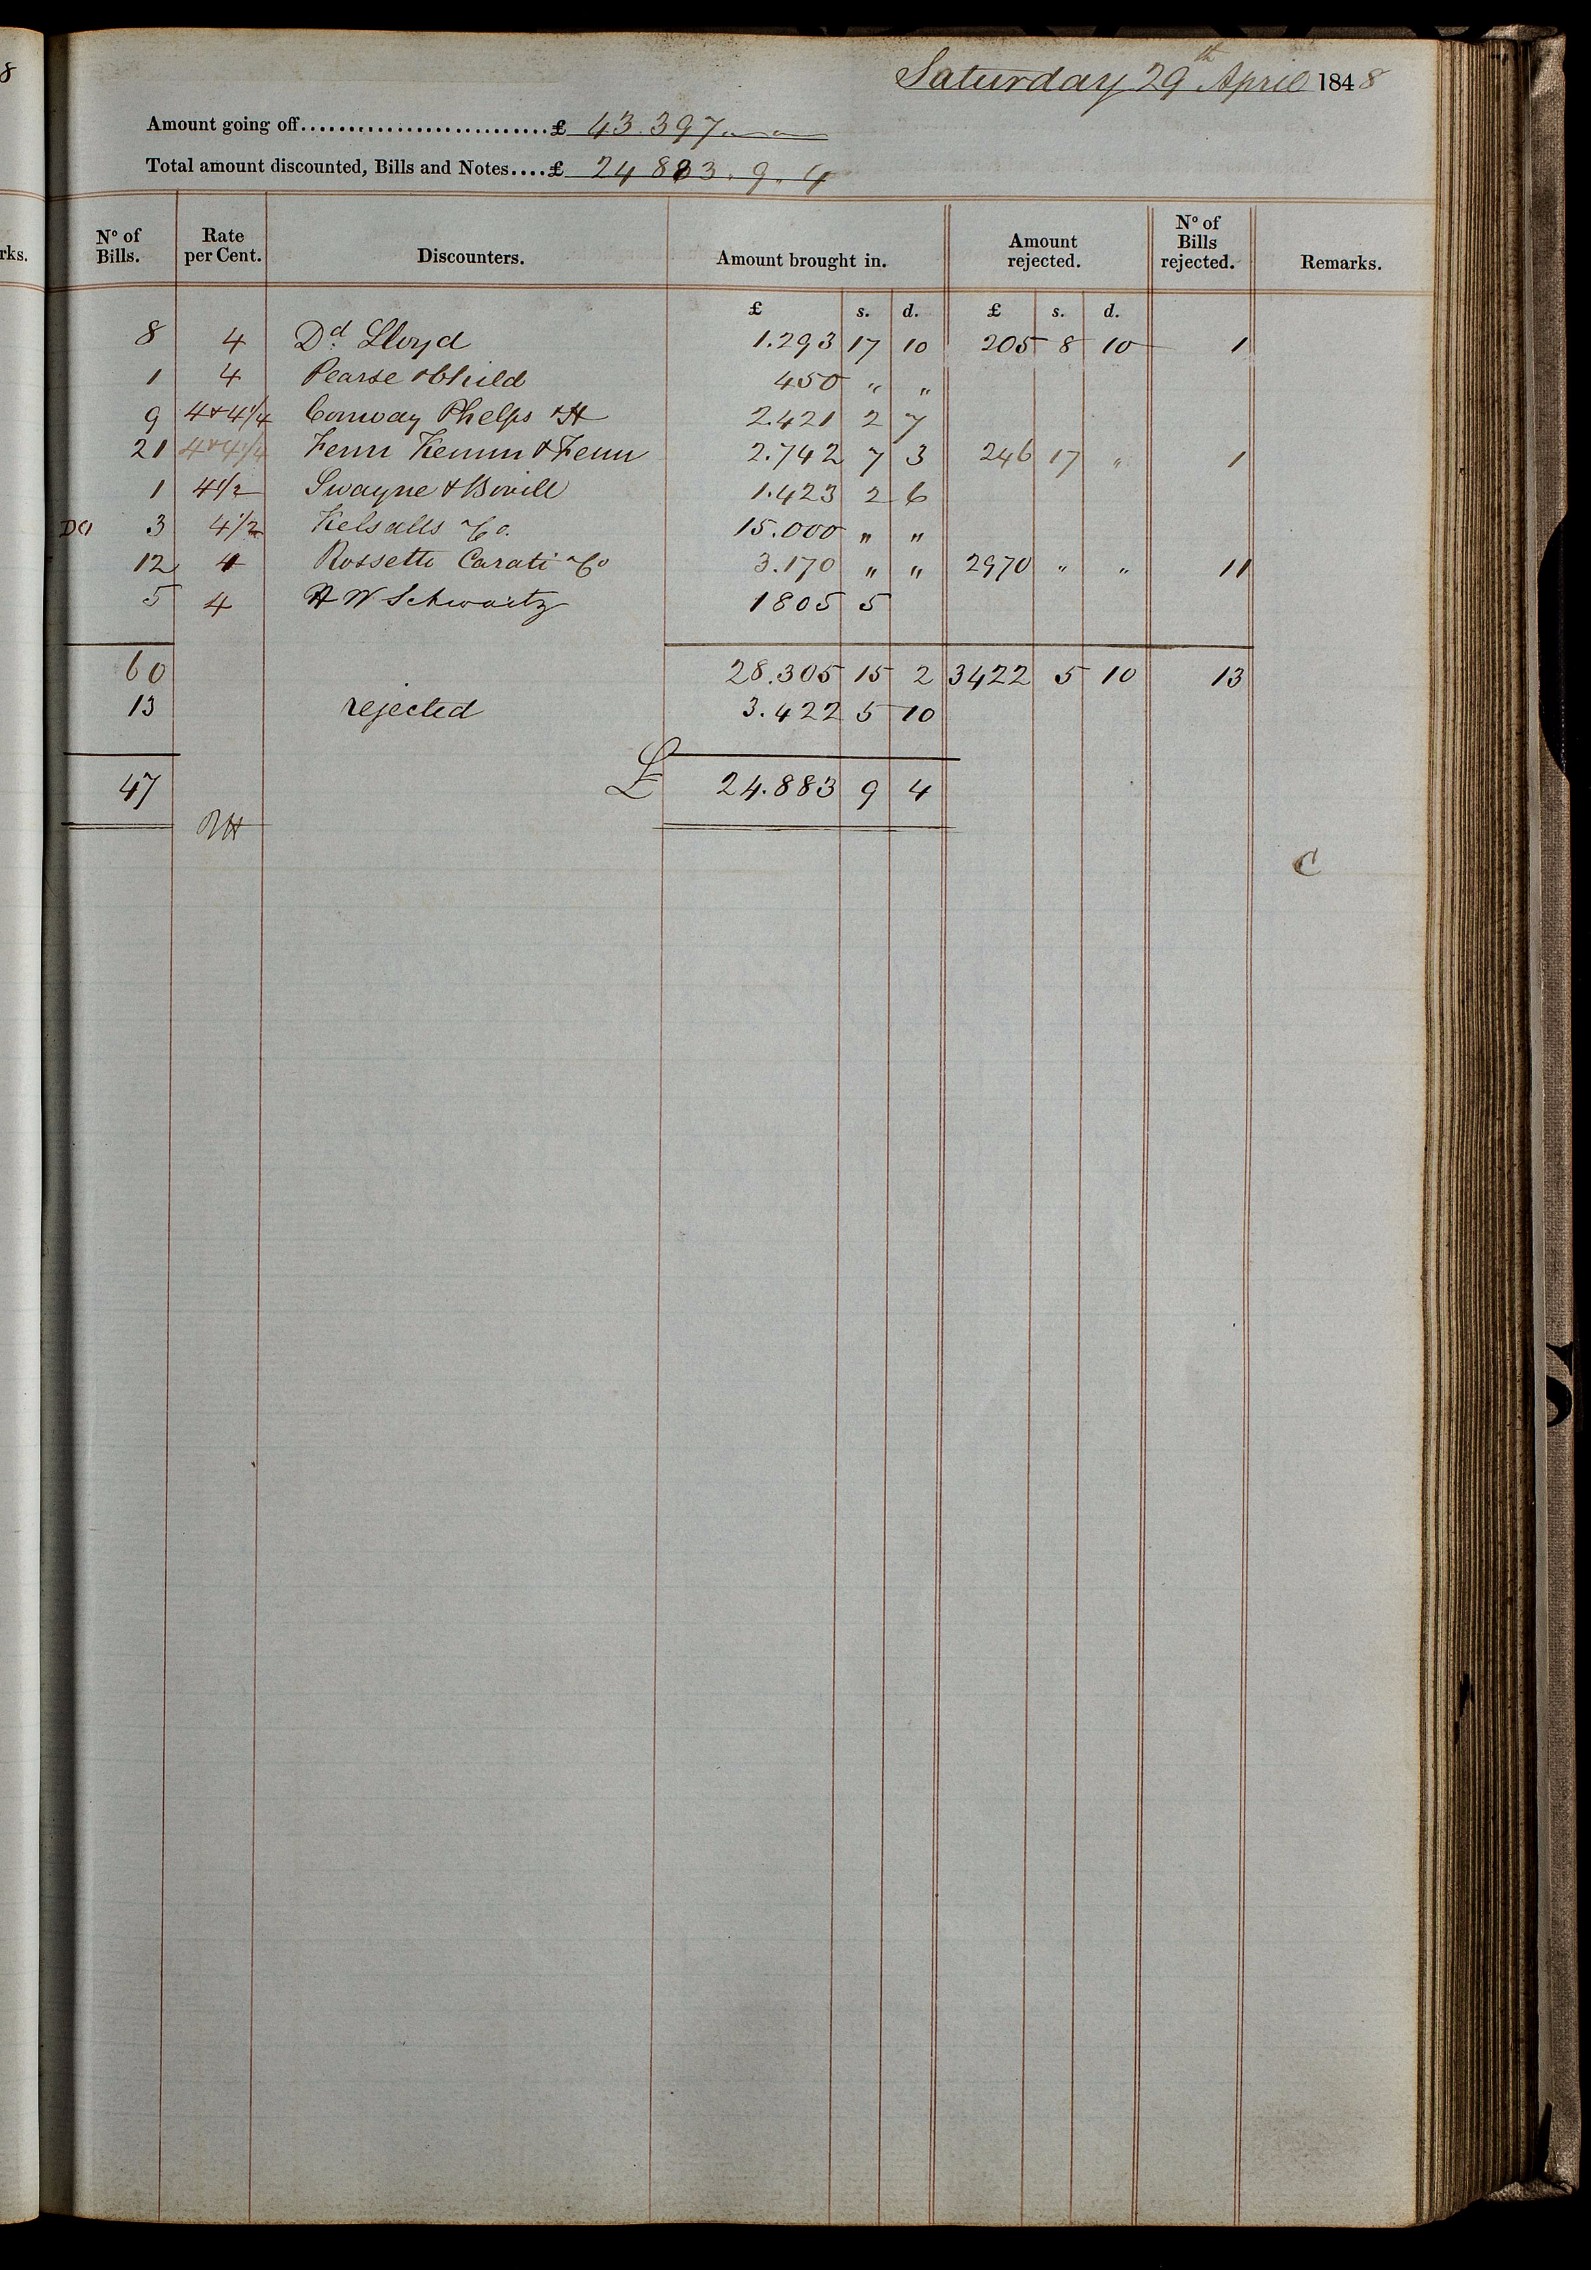 8
Saturday 29th April 1848
Amount going off........................... £ 43.397 " "
Total amount discounted, Bills and Notes.... £ 24 883 . 9 . 4
rks.
No of Bills. Rate per Cent. Discounters. Amount brought in. Amount rejected. No of Bills rejected. Remarks.
£ s. d. £ s. d.
8 4 Dd. Lloyd 1.293 17 10 205 8 10 1
1 4 Pearse & Child 450 " "
9 4 & 4 1/4 Conway Phelps & H 2.421 2 7
21 4 & 4 1/4 Fenn Kemm & Fenn 2.742 7 3 246 17 " 1
1 4 1/2 Swayne & Bovill 1.423 2 6
3 4 1/2 Kelsalls & Co. 15.000 " "
12 4 Rossetti Carati & Co 3.170 " " 2970 " " 11
5 4 H W Schwartz 1805 5
60 28.305 15 2 3422 5 10 13
13 rejected 3.422 5 10
47 £ 24.883 9 4
RH
C